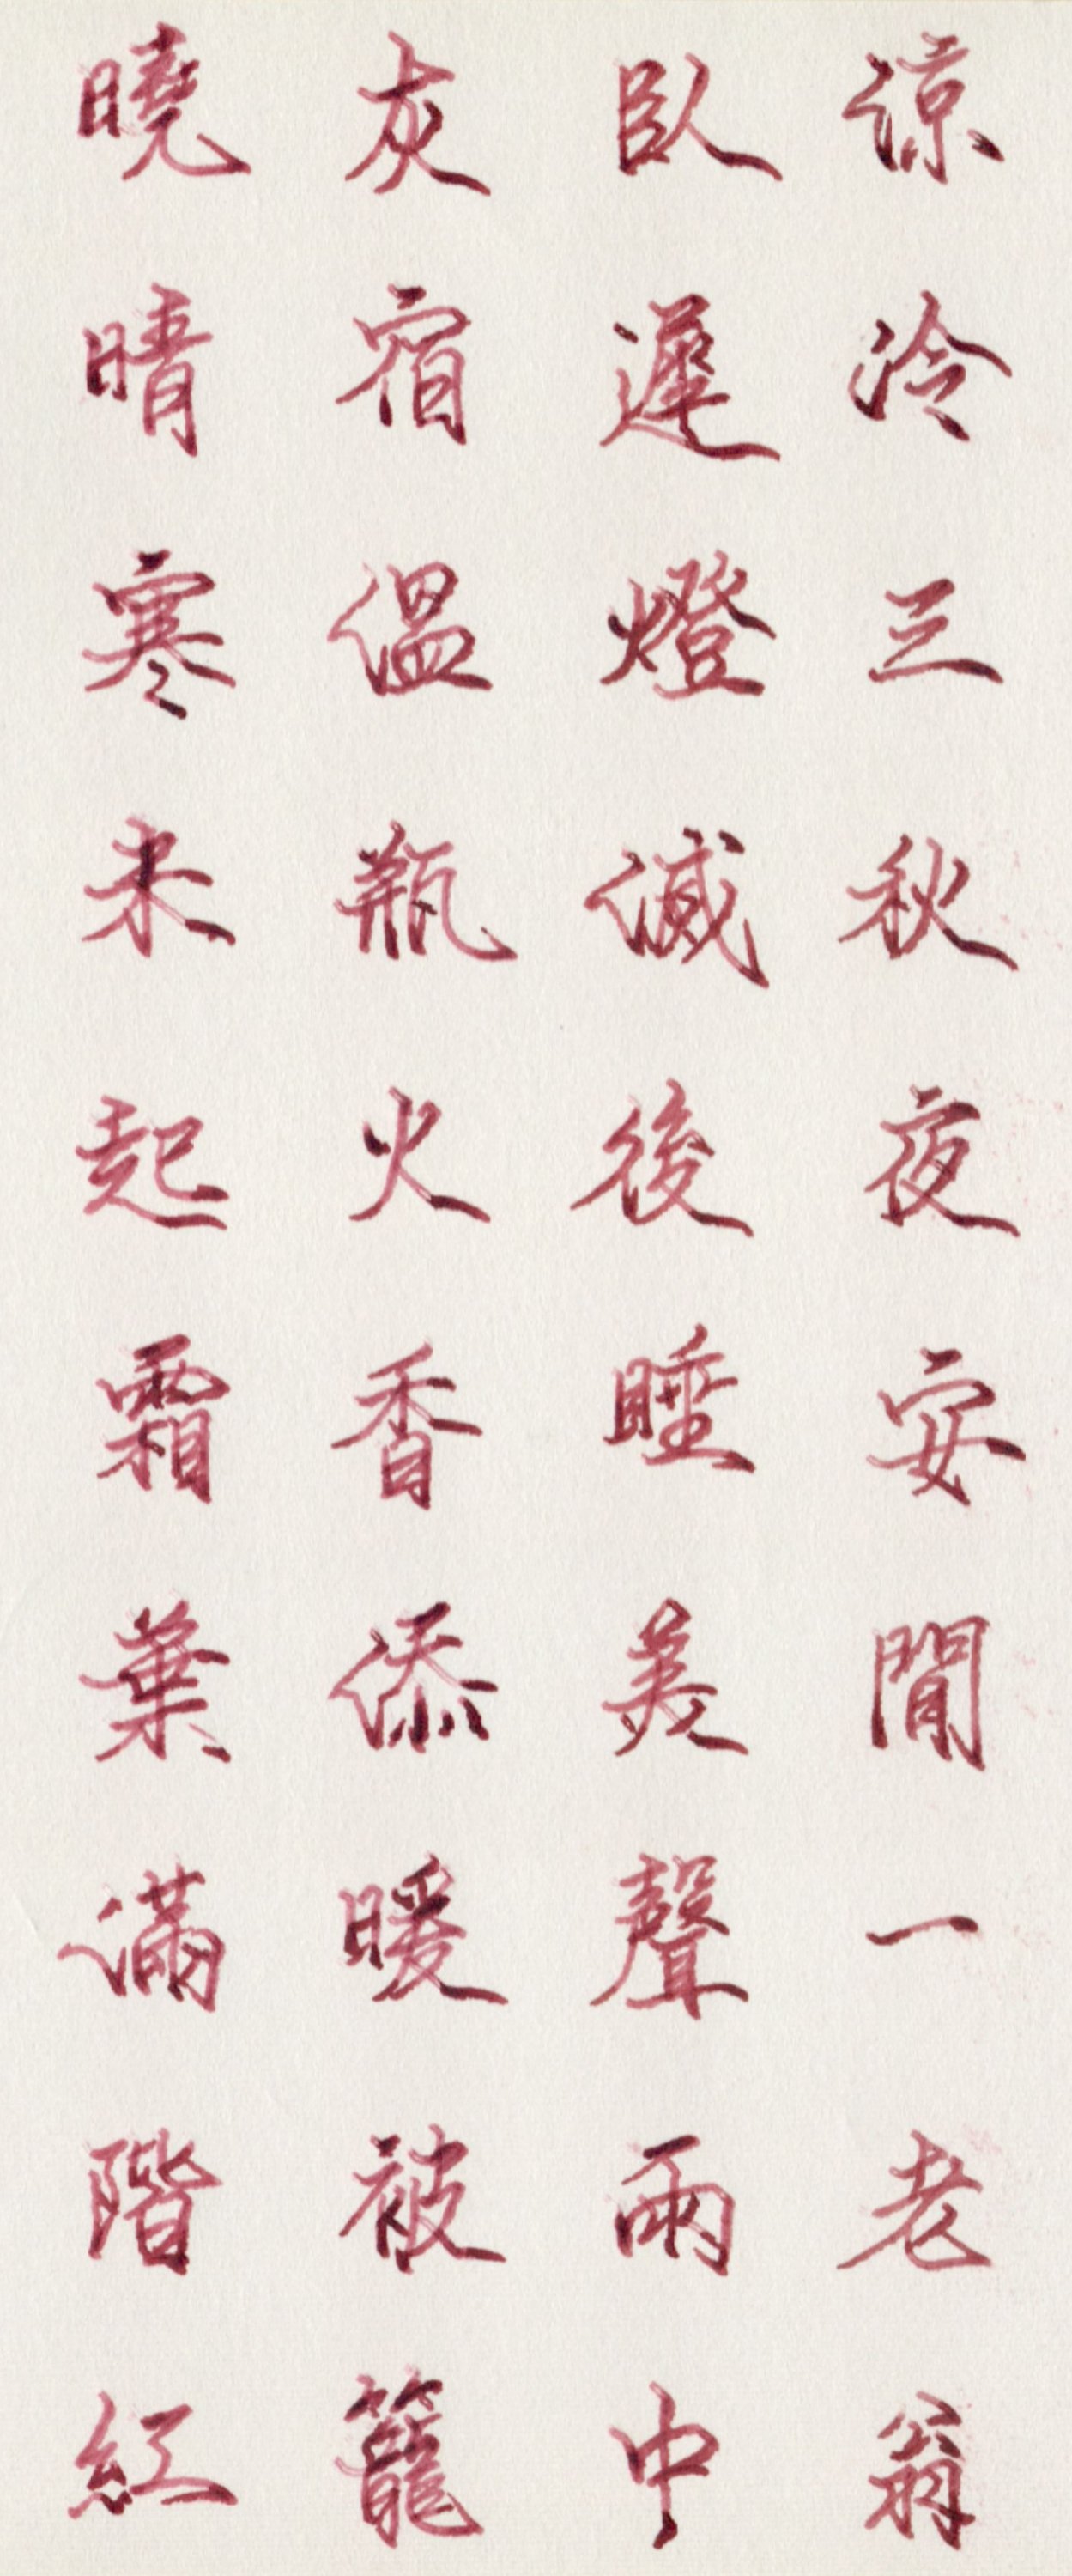 涼冷三秋夜安閒一老翁
臥遲燈滅後睡美聲雨中
灰宿温瓶火香添暖被籠
曉晴寒未起霜葉滿階紅